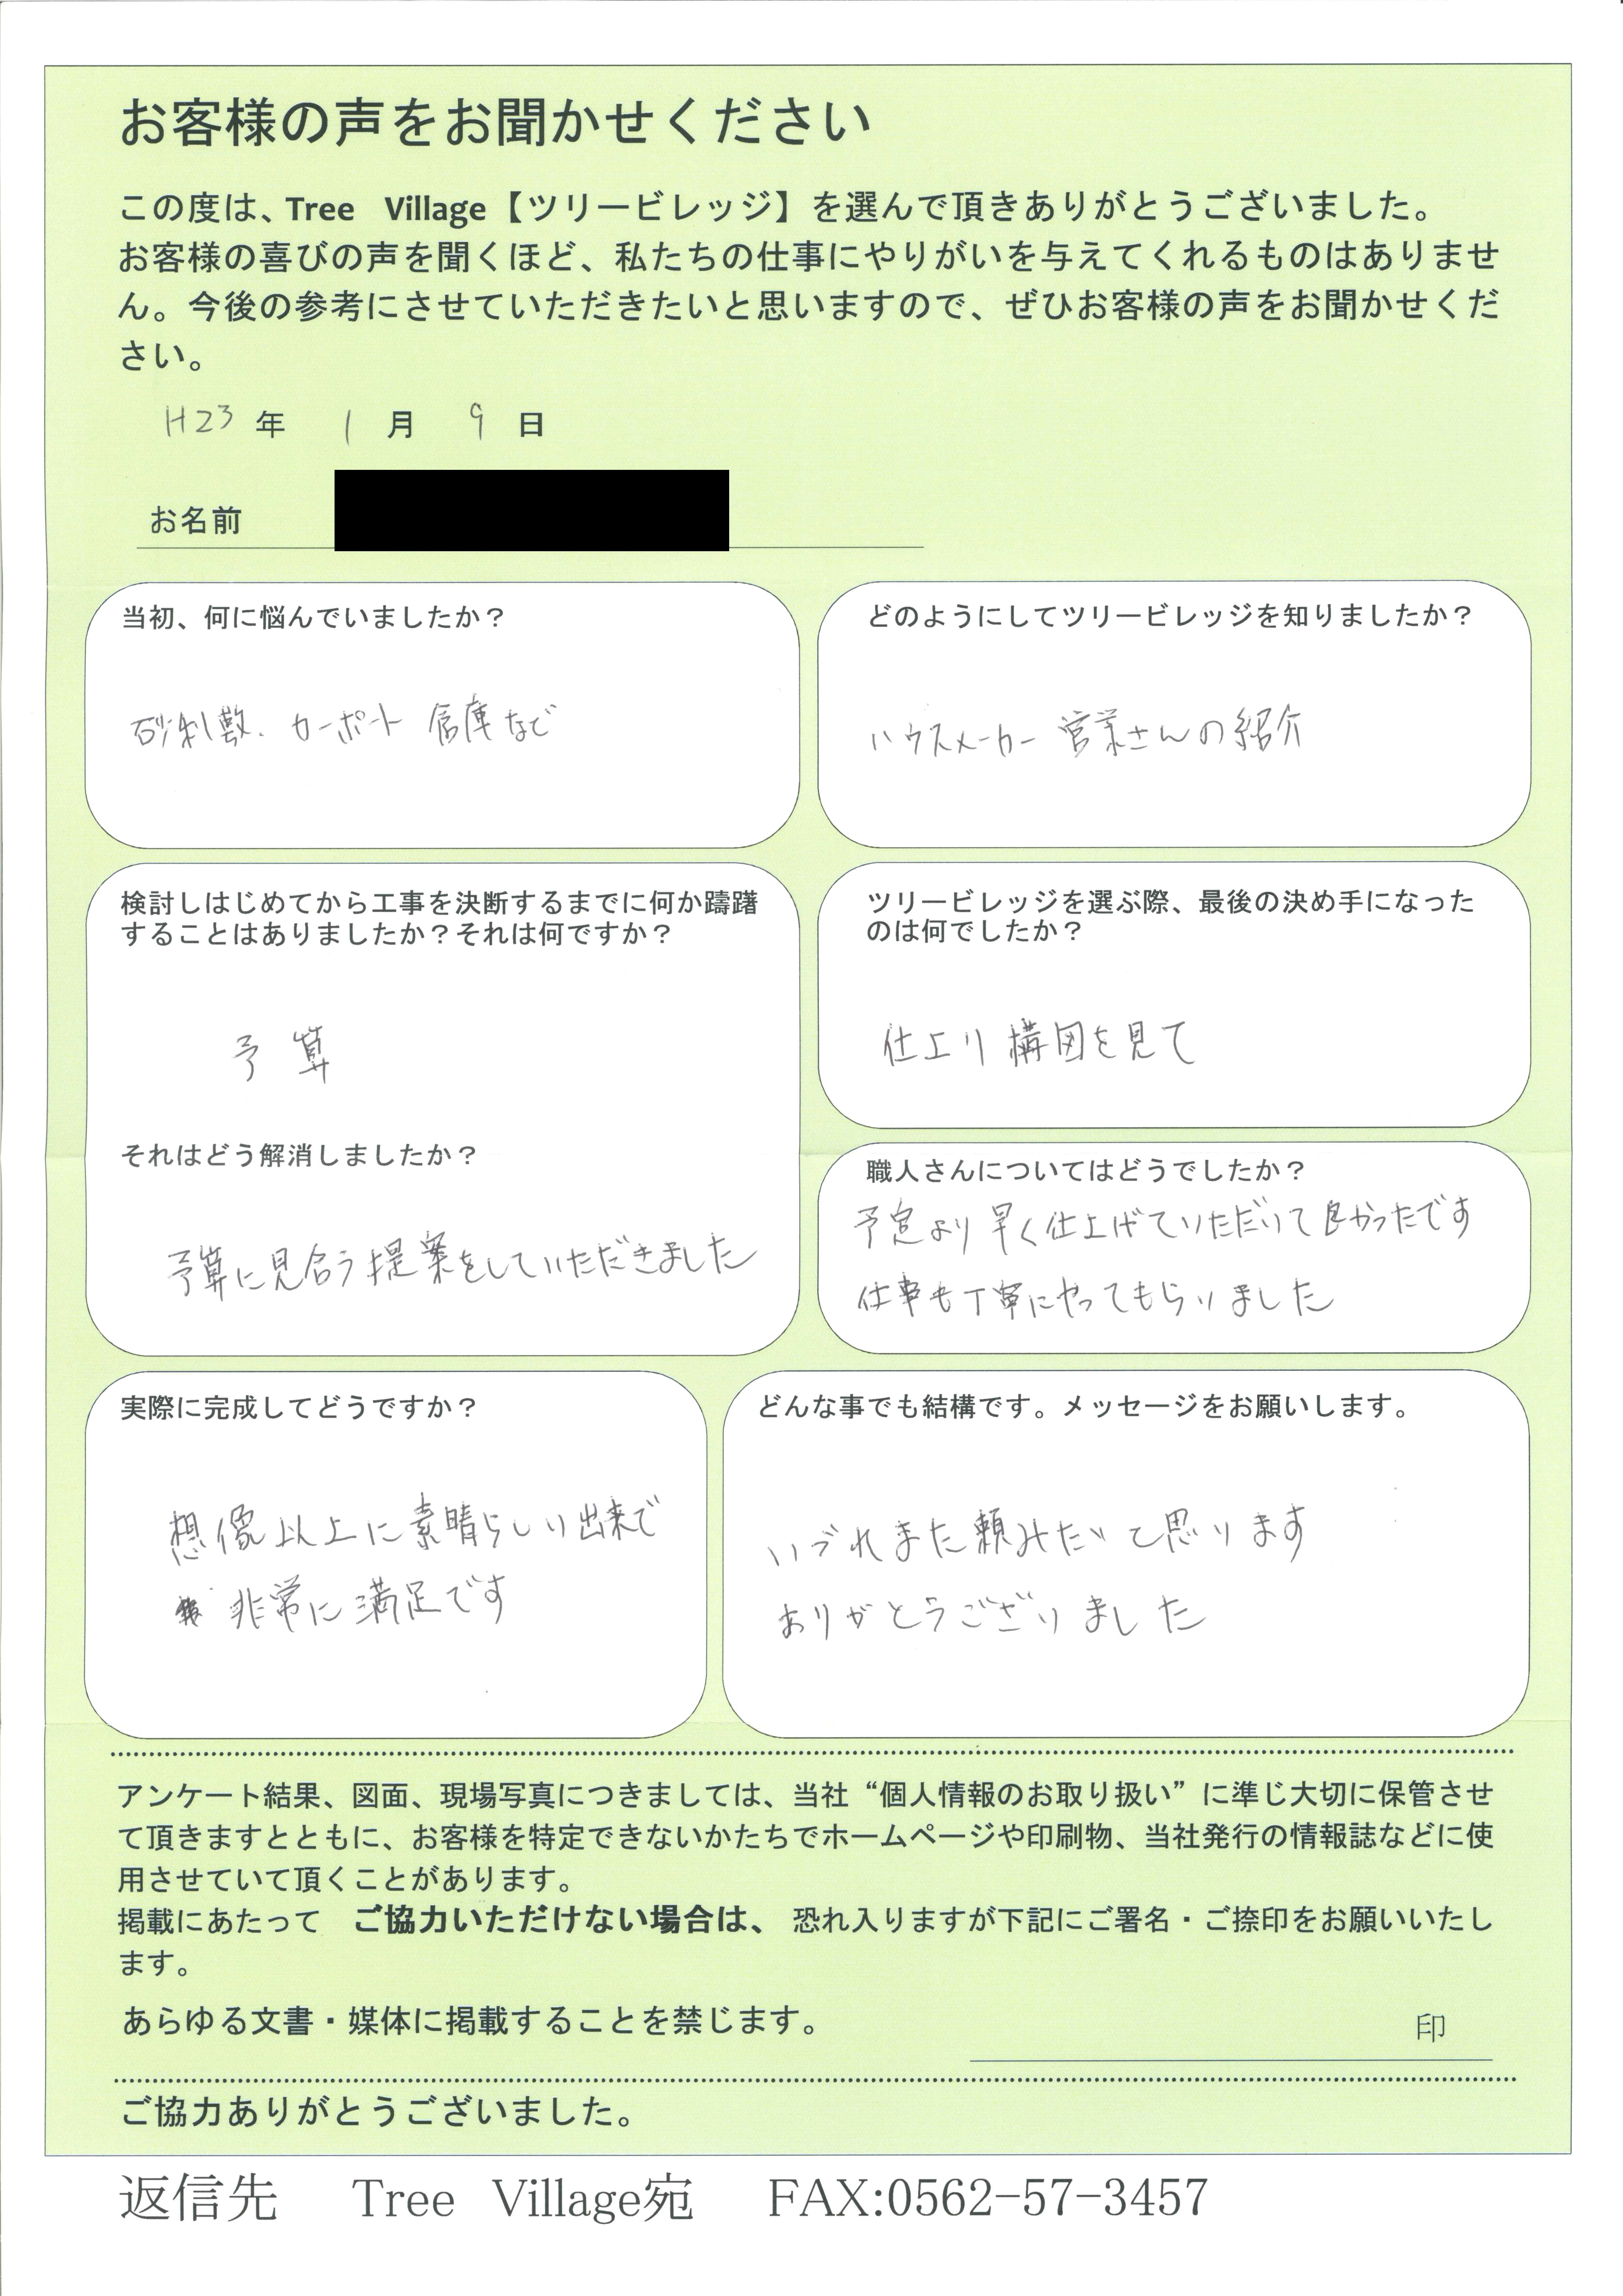 お客様の声をお聞かせください
この度は、Tree Village【ツリービレッジ】を選んで頂きありがとうございました。
お客様の喜びの声を聞くほど、私たちの仕事にやりがいを与えてくれるものはありませ
ん。今後の参考にさせていただきたいと思いますので、ぜひお客様の声をお聞かせくだ
さい。
H23年 1月 9日
お名前
当初、何に悩んでいましたか？
砂利敷、カーポート 倉庫など
どのようにしてツリービレッジを知りましたか？
ハウスメーカー営業さんの紹介
検討しはじめてから工事を決断するまでに何か躊躇
することはありましたか？それは何ですか？
予算
それはどう解消しましたか？
予算に見合う提案をしていただきました
ツリービレッジを選ぶ際、最後の決め手になった
のは何でしたか？
仕上り構図を見て
職人さんについてはどうでしたか？
予定より早く仕上げていただいて良かったです
仕事も丁寧にやってもらいました
実際に完成してどうですか？
想像以上に素晴らしい出来で
非常に満足です
どんな事でも結構です。メッセージをお願いします。
いづれまた頼みたいと思います
ありがとうございました
アンケート結果、図面、現場写真につきましては、当社“個人情報のお取り扱い”に準じ大切に保管させ
て頂きますとともに、お客様を特定できないかたちでホームページや印刷物、当社発行の情報誌などに使
用させていて頂くことがあります。
掲載にあたって ご協力いただけない場合は、恐れ入りますが下記にご署名・ご捺印をお願いいたし
ます。
あらゆる文書・媒体に掲載することを禁じます。
印
ご協力ありがとうございました。
返信先 Tree Village宛 FAX:0562-57-3457